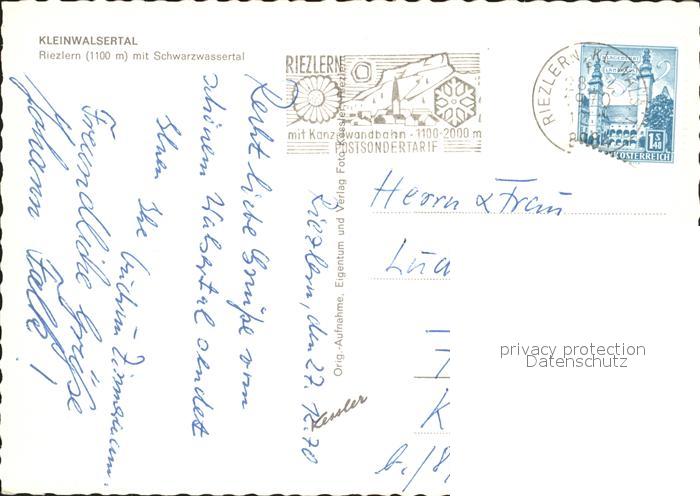 KLEINWALSERTAL
Riezlern (1100 m) mit Schwarzwassertal
RIEZLERN
mit Kanzelwandbahn - 1100-2000 m
POSTSONDERTARIF
RIEZLERN
S 1.40
ÖSTERREICH
Orig.-Aufnahme, Eigentum und Verlag Foto Kessler, Riezlern
Kessler
Riezlern, den 27. 12. 70
Recht liebe Grüße vom
schönen Walsertal sendet
Ihnen Ihr
Freundliche Grüße
Johann
Herrn & Frau
privacy protection
Datenschutz